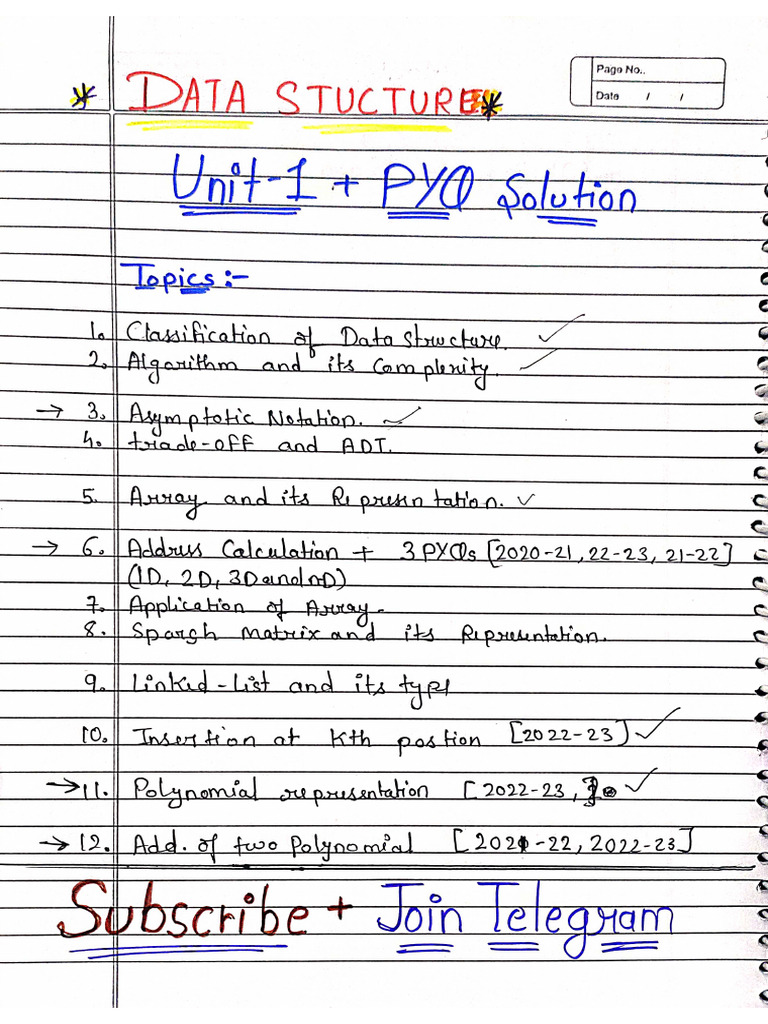 Page No..
Date / /
* DATA STUCTURE *
Unit-1 + PYQ Solution
Topics :-
1. Classification of Data Structure.
2. Algorithm and its Complexity.
→ 3. Asymptotic Notation.
4. trade-off and ADT.
5. Array and its Representation.
→ 6. Address Calculation + 3 PYQs [2020-21, 22-23, 21-22]
(1D, 2D, 3D and nD)
7. Application of Array.
8. Spargh matrix and its Representation.
9. Linked-List and its type
10. Insertion at Kth postion [2022-23]
→ 11. Polynomial representation [2022-23,
→ 12. Add. of two Polynomial [2021-22, 2022-23]
Subscribe + Join Telegram